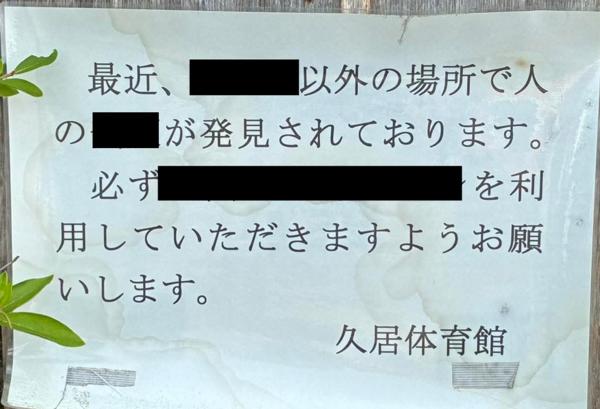 最近、以外の場所で人
のが発見されております。
必ずを利
用していただきますようお願
いします。
久居体育館